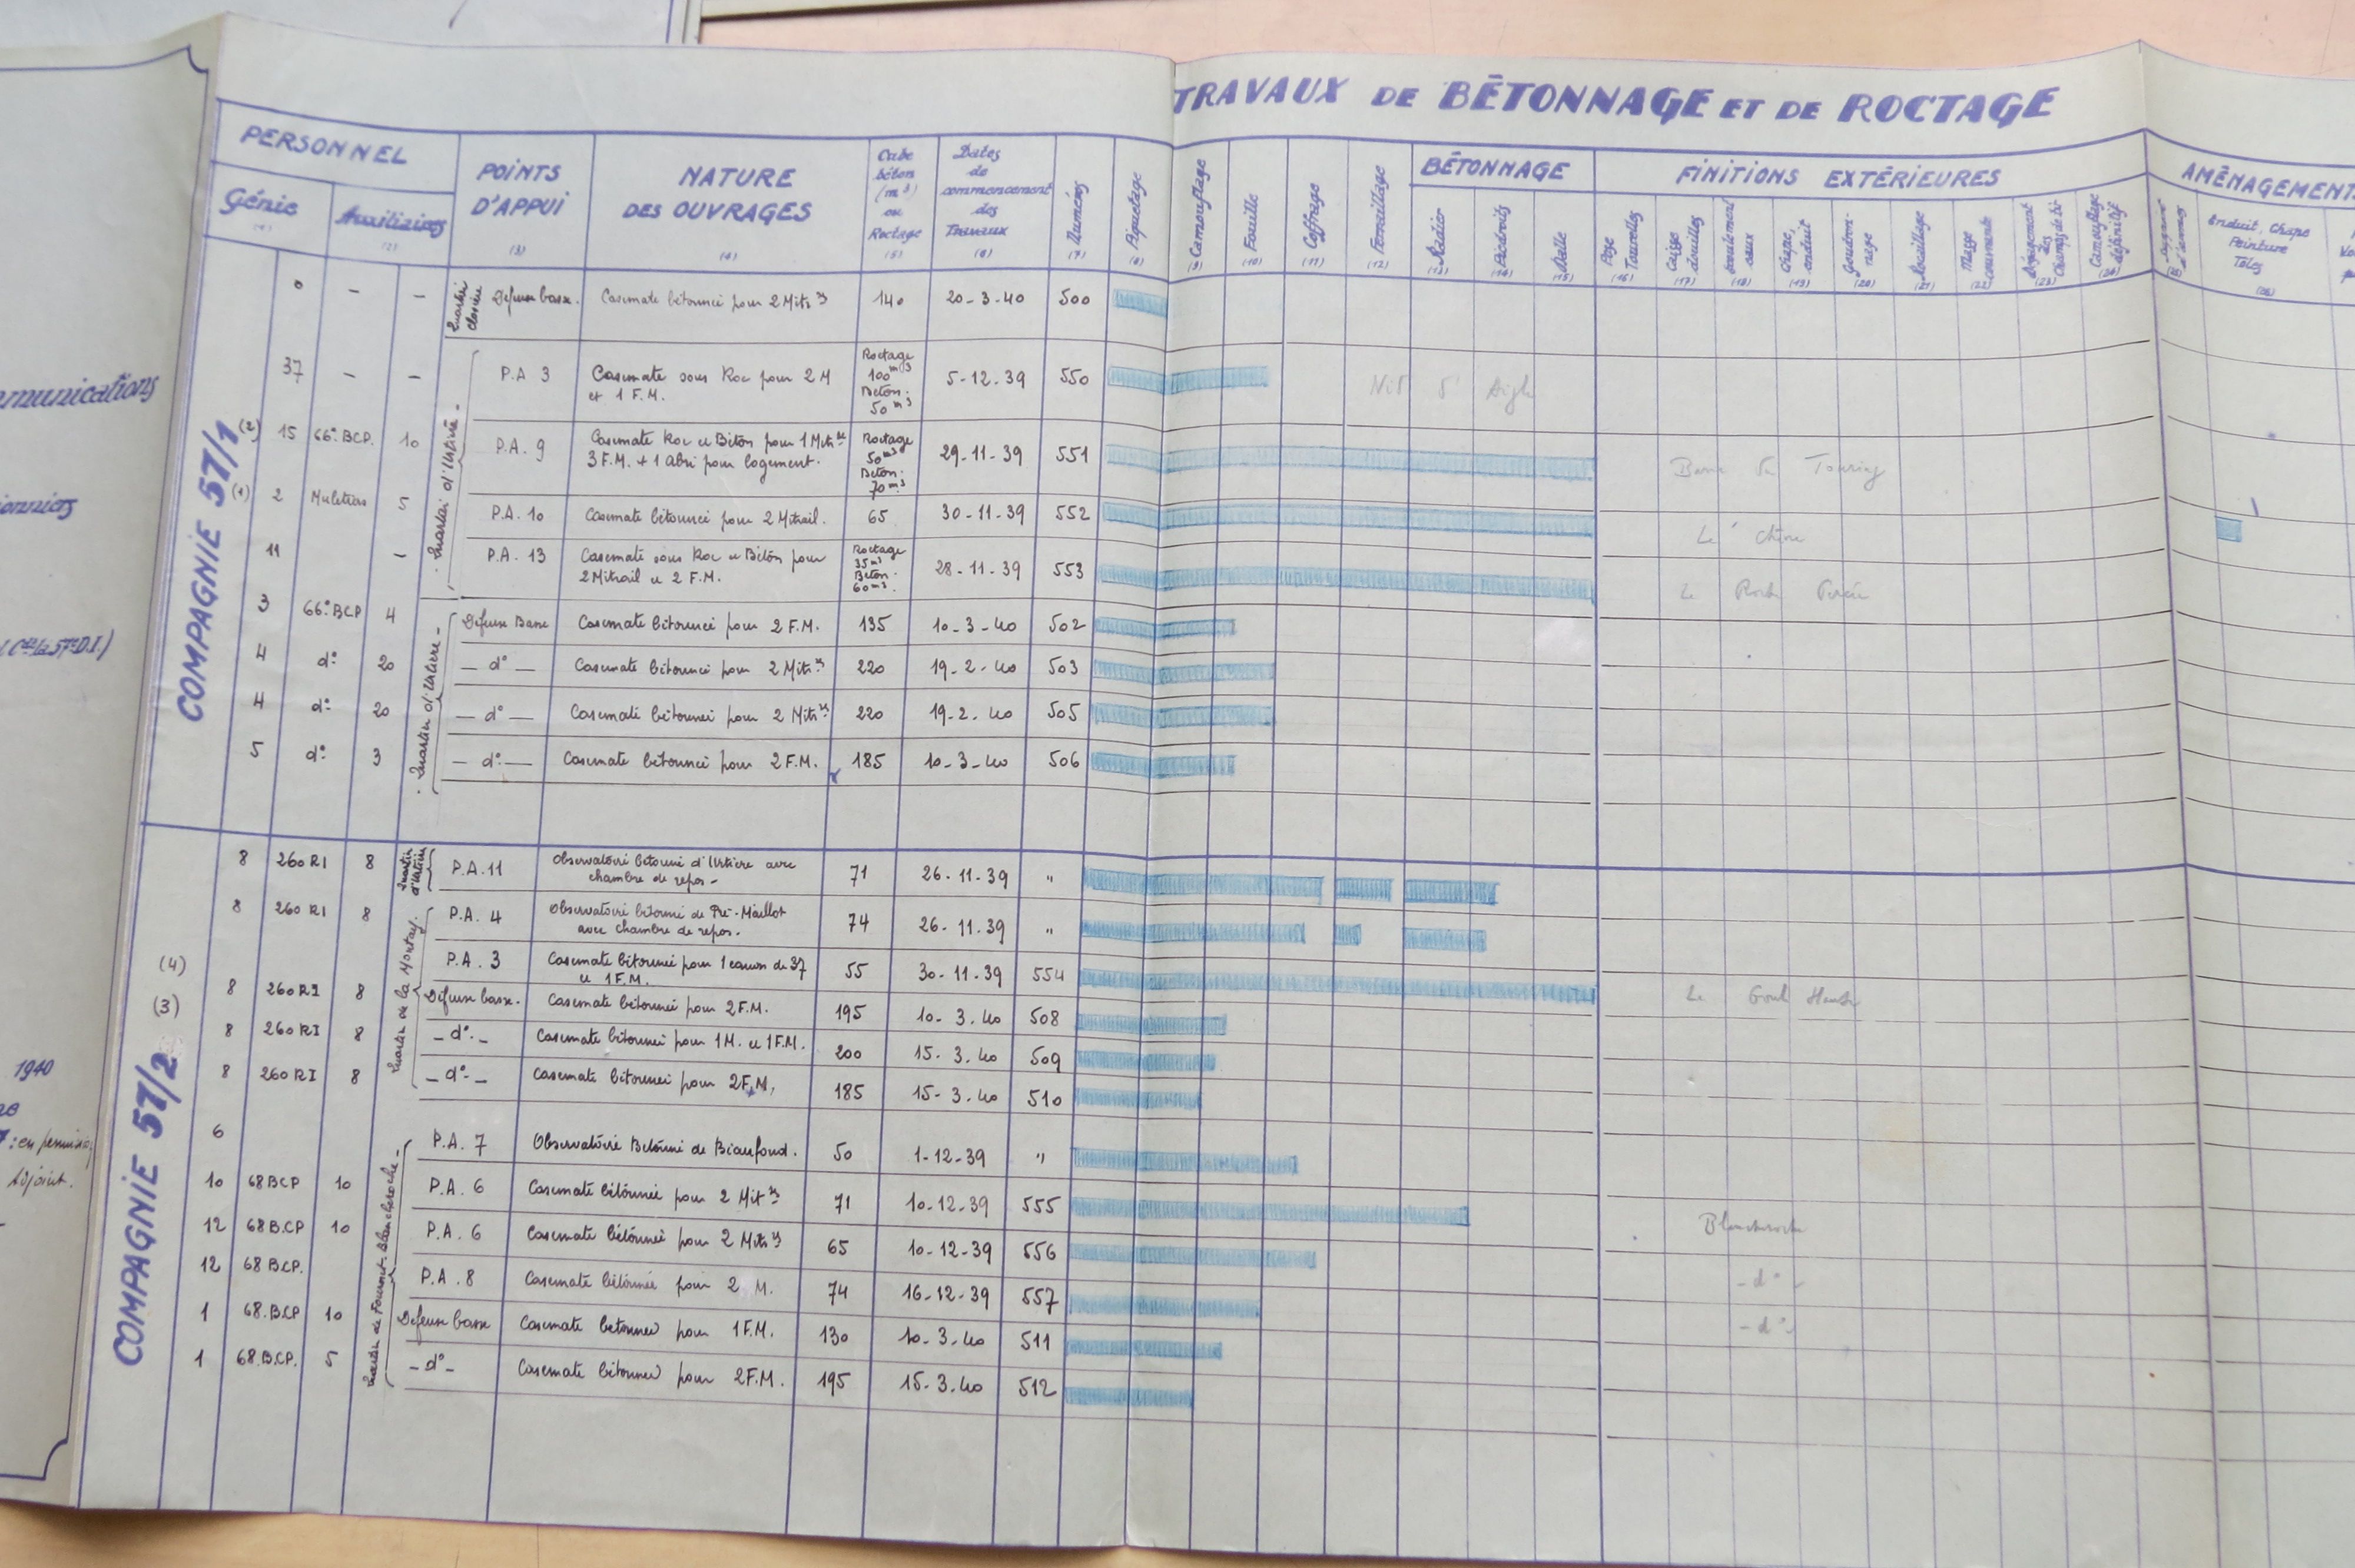 TRAVAUX DE BÉTONNAGE ET DE ROCTAGE
PERSONNEL
Génie
(1)
Auxiliaires
(2)
POINTS
D'APPUI
(3)
NATURE
DES OUVRAGES
(4)
Cube
béton
(m³)
ou
Roctage
(5)
Dates
de
commencement
des
Travaux
(6)
Numéros
(7)
Piquetage
(8)
Camouflage
Fouille
(10)
Coffrage
(11)
Ferraillage
(12)
BÉTONNAGE
Radier
Piédroits
Dalle
(15)
FINITIONS EXTÉRIEURES
Pose
Tourelles
(16)
Caisse
douilles
(17)
(18)
Chape,
enduit
(19)
Goudron-
nage
(20)
Rocaillage
(21)
Masse
couvrante
(22)
Dégagement
des
Champs de tir
(23)
Camouflage
définitif
AMÉNAGEMENT
Enduit, Chape
Peinture
Tôles
mmunications
ionniers
1940
Adjoint.
COMPAGNIE 57/1
(2)
(1)
Quartier d'Urtière
Quartier d'Urtière
0 - - Défense basse. Casemate bétonnée pour 2 Mitr 140 20-3-40 500
37 - - P.A 3 Casemate sous Roc pour 2 M et 1 F.M. Roctage 100 m³ Béton: 50 m³ 5-12-39 550 Nid d'Aigle
15 66e BCP. 10 P.A. 9 Casemate Roc et Béton pour 1 Mitr 3 F.M. + 1 Abri pour logement. Roctage 50 m³ Béton: 70 m³ 29-11-39 551 Touring
2 Muletiers 5 P.A. 10 Casemate bétonnée pour 2 Mitrail. 65 30-11-39 552 Le Chêne
11 - P.A. 13 Casemate sous Roc et Béton pour 2 Mitrail et 2 F.M. Roctage 35 m³ Béton: 60 m³. 28-11-39 553
3 66e BCP 4 Défense Basse Casemate bétonnée pour 2 F.M. 135 10-3-40 502
4 d° 20 - d° - Casemate bétonnée pour 2 Mitrs 220 19-2-40 503
4 d° 20 - d° - Casemate bétonnée pour 2 Mitrs 220 19-2-40 505
5 d° 3 - d° - Casemate bétonnée pour 2 F.M. 185 10-3-40 506
COMPAGNIE 57/2
(4)
(3)
Quartier d'Urtière
Quartier de la Montay.
Quartier de Fournet-Blancheroche-
8 260 RI 8 P.A. 11 Observatoire bétonné d'Urtière avec chambre de repos - 71 26-11-39 "
8 260 RI 8 P.A. 4 Observatoire bétonné de Pré-Maillot avec chambre de repos. 74 26-11-39 "
P.A. 3 Casemate bétonnée pour 1 canon de 37 et 1 F.M. 55 30-11-39 554
8 260 RI 8 Défense basse. Casemate bétonnée pour 2 F.M. 195 10-3-40 508
8 260 RI 8 - d° - Casemate bétonnée pour 1 M. et 1 F.M. 200 15-3-40 509
8 260 RI 8 - d° - Casemate bétonnée pour 2 F.M. 185 15-3-40 510
6 P.A. 7 Observatoire Bétonné de Biaufond. 50 1-12-39 "
10 68 BCP 10 P.A. 6 Casemate bétonnée pour 2 Mitrs 71 10-12-39 555 Blancheroche
12 68 B.CP 10 P.A. 6 Casemate bétonnée pour 2 Mitrs 65 10-12-39 556 - d° -
12 68 B.CP. P.A. 8 Casemate bétonnée pour 2 M. 74 16-12-39 557 - d° -
1 68.B.CP 10 Défense basse Casemate bétonnée pour 1 F.M. 130 10-3-40 511
1 68.B.CP. 5 - d° - Casemate bétonnée pour 2 F.M. 195 15-3-40 512